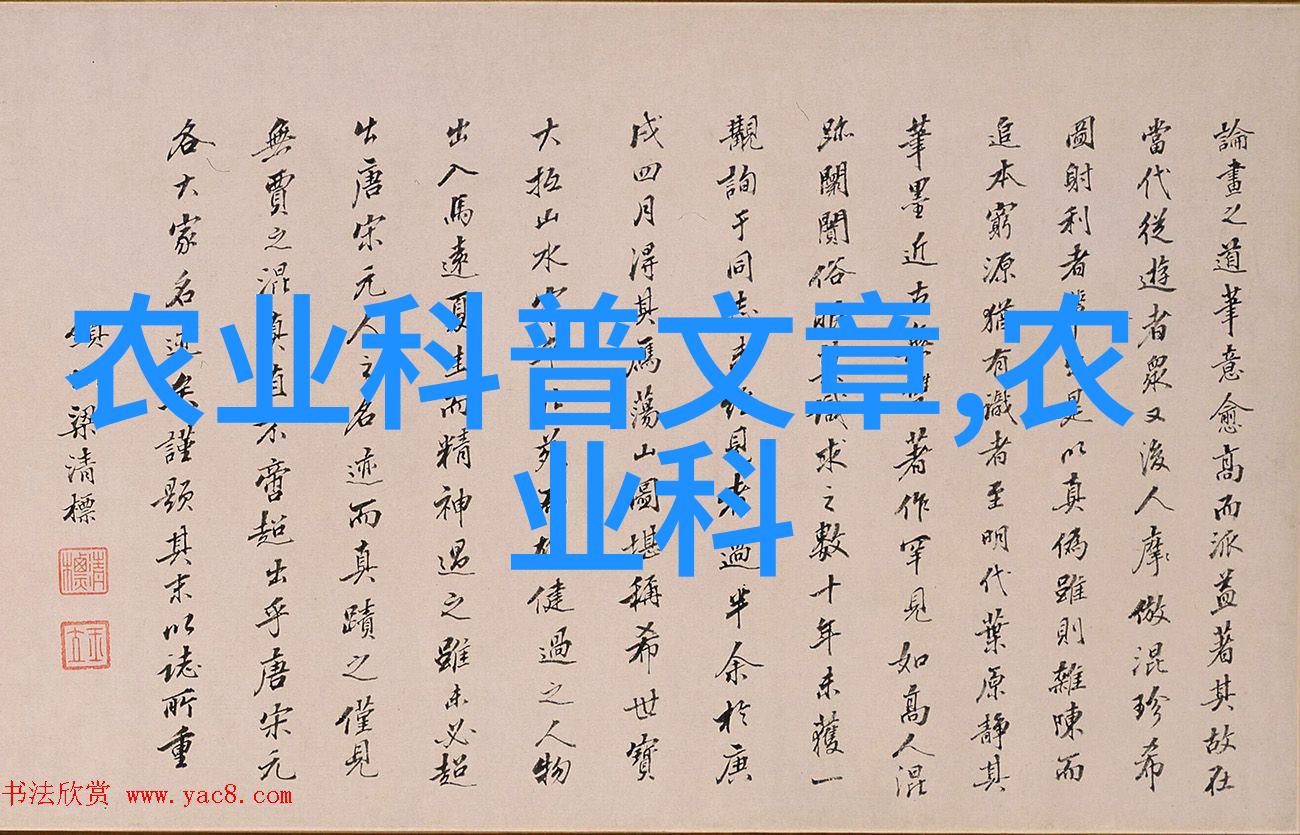 論畫之道筆意愈高而派益著其故在
當代從遊者眾又後人摩倣混珍希
圖射利者是以真偽雖則雜陳而
追本窮源猶有識者至明代葉原靜其
筆墨近古著作罕見如高人混
跡闤闠俗眼求之數十年未獲一
觀詢于同志過半余於庚
戌四月得其馬蕩山圖堪稱希世寶
大抵山水健過之人物
出入馬遠夏圭而精神過之雖未必超
出唐宋元人之名迹而真蹟之僅見
無贋之混真直不啻超出乎唐宋元
各大家名迹矣謹題其末以誌所重
梁清標
农业科普文章,农
业科
书法欣赏 www.yac8.com